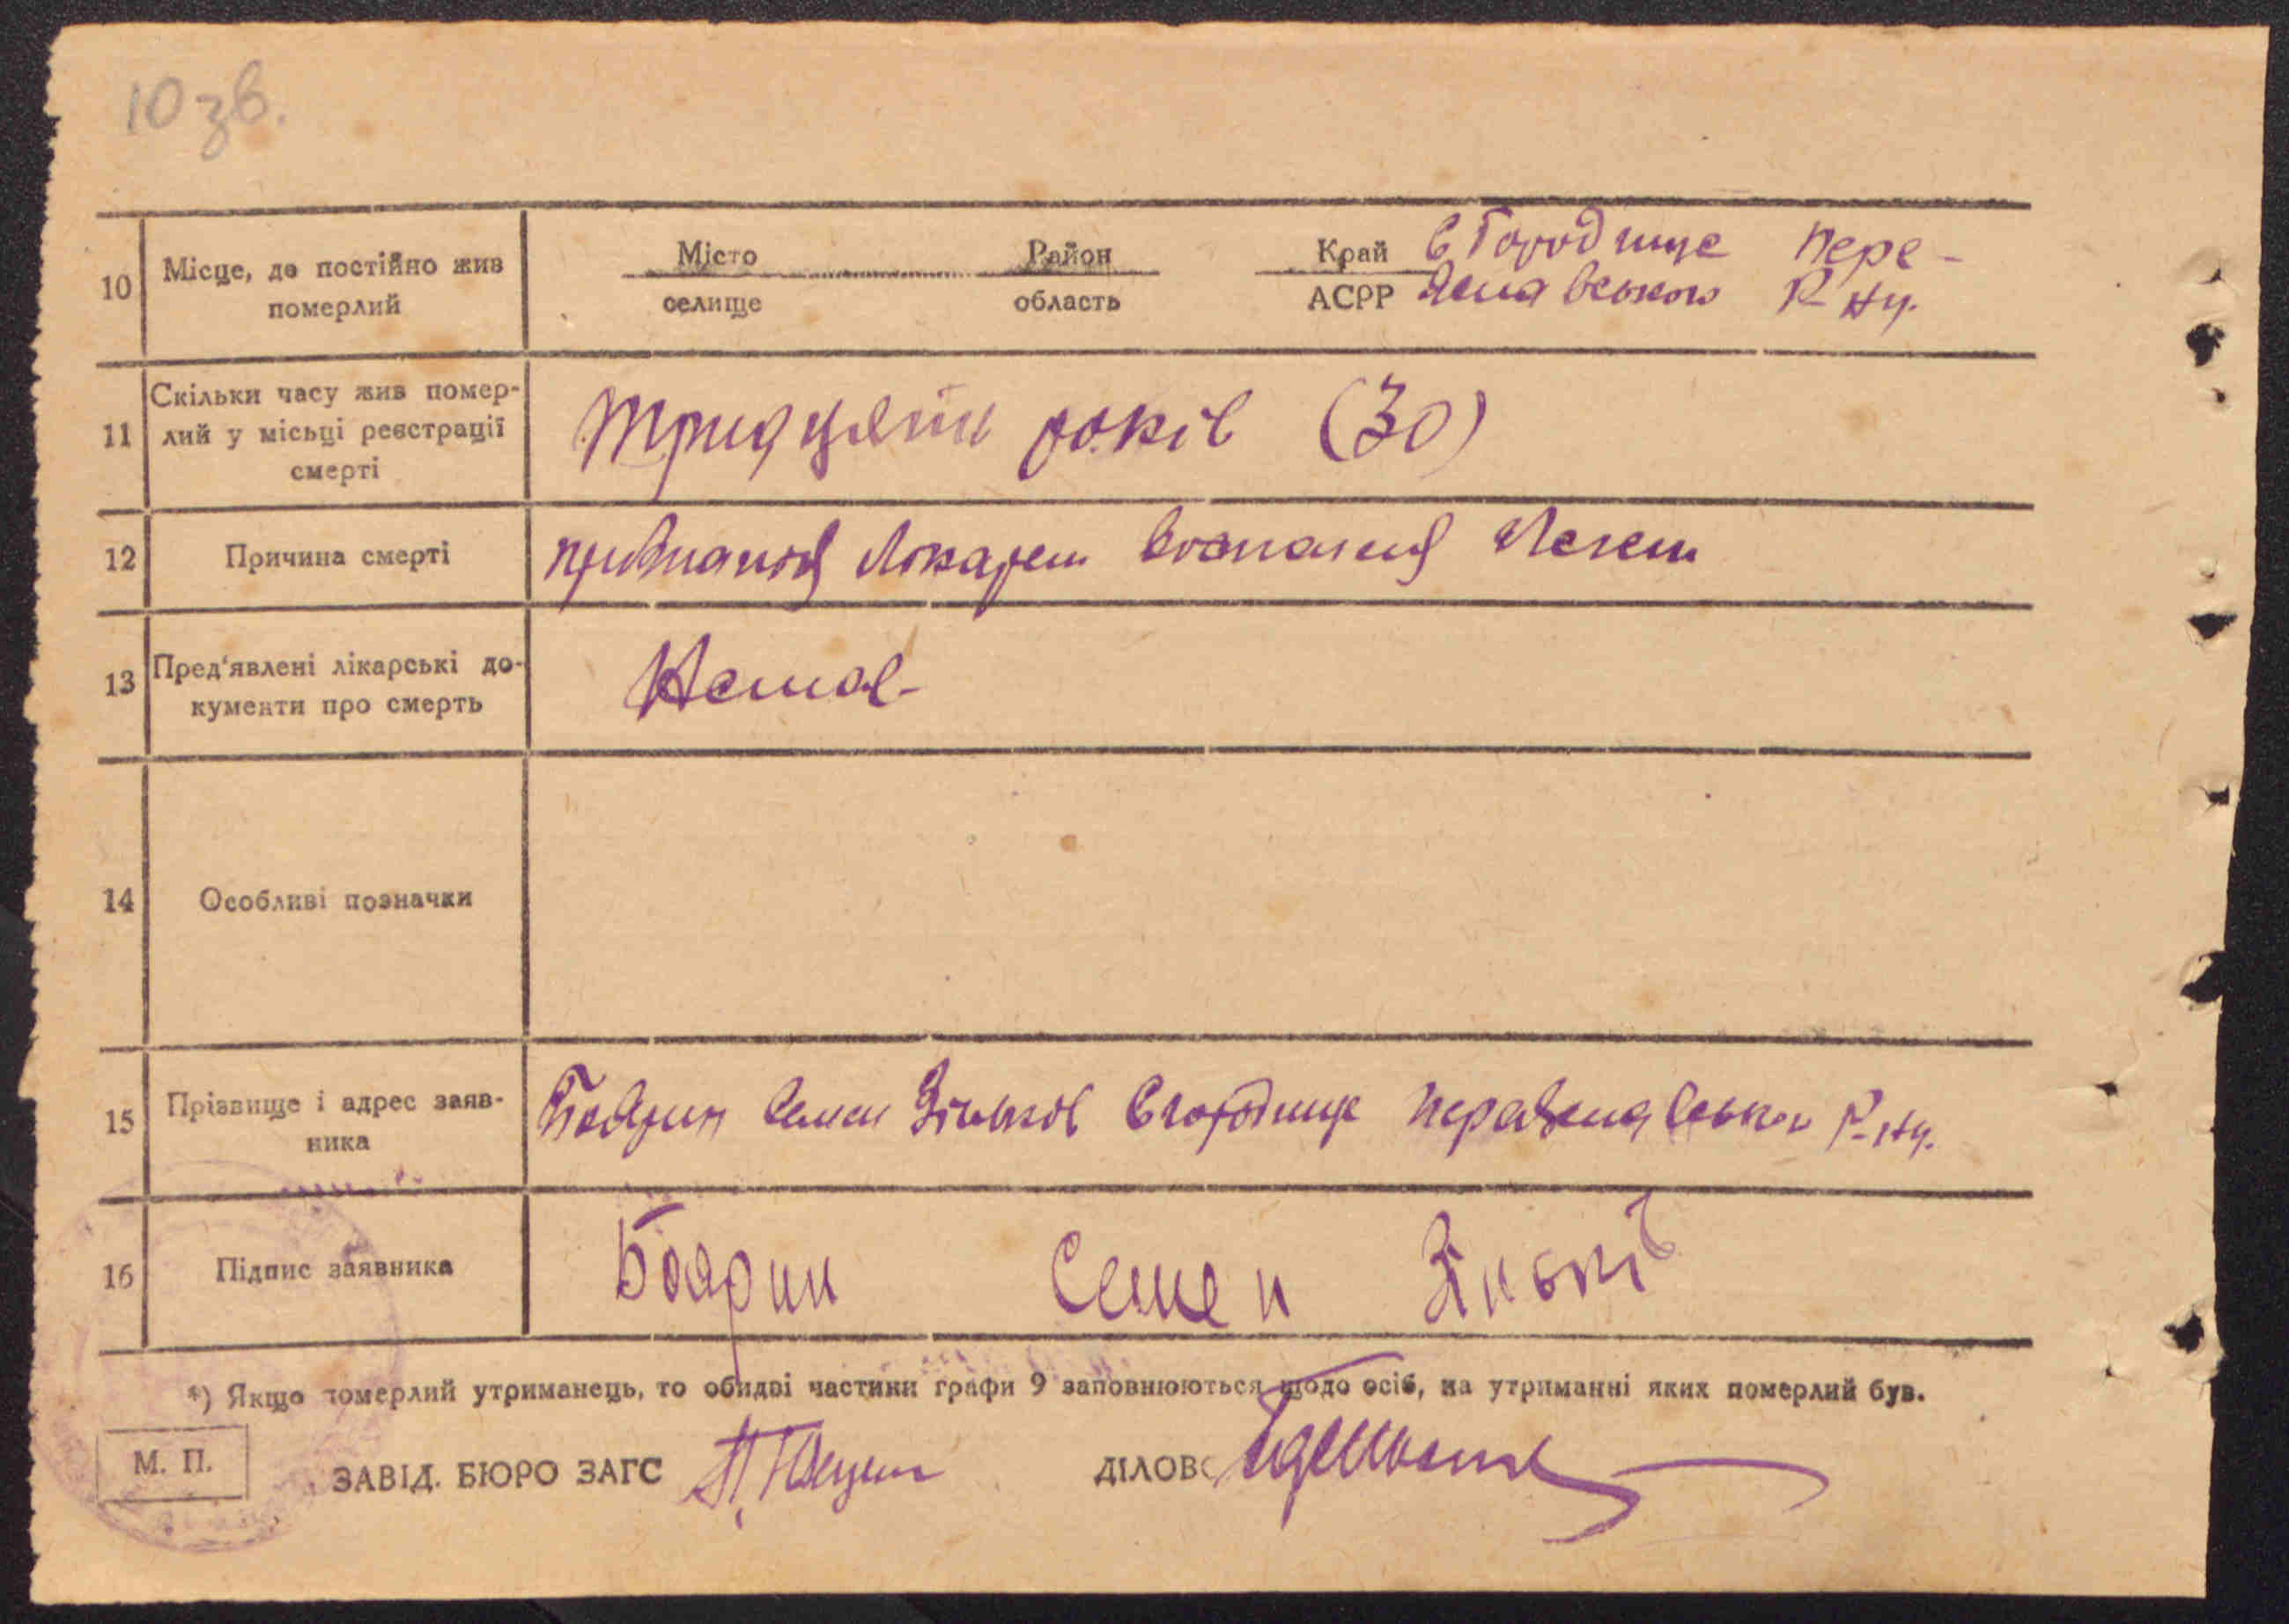 10 зв.
10 Місце, де постійно жив померлий
Місто Район Край с Городище Пере-
селище область АСРР яславського р-ну.
11 Скільки часу жив помер-
лий у місьці реєстрації
смерті
Тридцять років (30)
12 Причина смерті
признаної лікарем воспаления легень
13 Пред'явлені лікарські до-
кументи про смерть
Немає-
14 Особливі позначки
15 Прізвище і адрес заяв-
ника
Боярин Семен Зіньків с городище Р-ну.
16 Підпис заявника
Боярин Семен Зіньків
*) Якщо померлий утриманець, то обидві частини графи 9 заповнюються щодо осіб, на утриманні яких померлий був.
М. П.
ЗАВІД. БЮРО ЗАГС ДІЛОВ